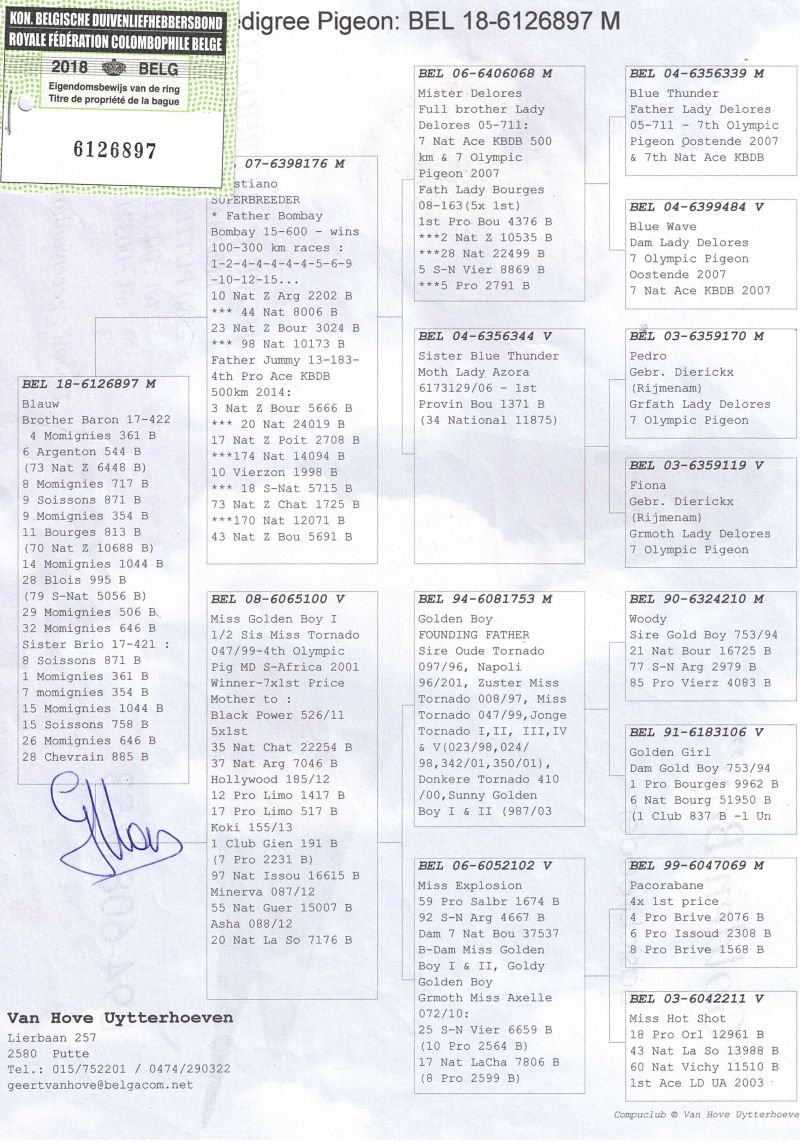 KON. BELGISCHE DUIVENLIEFHEBBERSBOND
ROYALE FÉDÉRATION COLOMBOPHILE BELGE
2018 BELG
Eigendomsbewijs van de ring
Titre de propriété de la bague
6126897
edigree Pigeon: BEL 18-6126897 M
BEL 18-6126897 M
Blauw
Brother Baron 17-422
4 Momignies 361 B
6 Argenton 544 B
(73 Nat Z 6448 B)
8 Momignies 717 B
9 Soissons 871 B
9 Momignies 354 B
11 Bourges 813 B
(70 Nat Z 10688 B)
14 Momignies 1044 B
28 Blois 995 B
(79 S-Nat 5056 B)
29 Momignies 506 B
32 Momignies 646 B
Sister Brio 17-421 :
8 Soissons 871 B
1 Momignies 361 B
7 momignies 354 B
15 Momignies 1044 B
15 Soissons 758 B
26 Momignies 646 B
28 Chevrain 885 B
07-6398176 M
stiano
SUPERBREEDER
* Father Bombay
Bombay 15-600 - wins
100-300 km races :
1-2-4-4-4-4-4-5-6-9
-10-12-15...
10 Nat Z Arg 2202 B
*** 44 Nat 8006 B
23 Nat Z Bour 3024 B
*** 98 Nat 10173 B
Father Jummy 13-183-
4th Pro Ace KBDB
500km 2014:
3 Nat Z Bour 5666 B
*** 20 Nat 24019 B
17 Nat Z Poit 2708 B
***174 Nat 14094 B
10 Vierzon 1998 B
*** 18 S-Nat 5715 B
73 Nat Z Chat 1725 B
***170 Nat 12071 B
43 Nat Z Bou 5691 B
BEL 08-6065100 V
Miss Golden Boy I
1/2 Sis Miss Tornado
047/99-4th Olympic
Pig MD S-Africa 2001
Winner-7x1st Price
Mother to :
Black Power 526/11
5x1st
35 Nat Chat 22254 B
37 Nat Arg 7046 B
Hollywood 185/12
12 Pro Limo 1417 B
17 Pro Limo 517 B
Koki 155/13
1 Club Gien 191 B
(7 Pro 2231 B)
97 Nat Issou 16615 B
Minerva 087/12
55 Nat Guer 15007 B
Asha 088/12
20 Nat La So 7176 B
BEL 06-6406068 M
Mister Delores
Full brother Lady
Delores 05-711:
7 Nat Ace KBDB 500
km & 7 Olympic
Pigeon 2007
Fath Lady Bourges
08-163(5x 1st)
1st Pro Bou 4376 B
***2 Nat Z 10535 B
***28 Nat 22499 B
5 S-N Vier 8869 B
***5 Pro 2791 B
BEL 04-6356344 V
Sister Blue Thunder
Moth Lady Azora
6173129/06 - 1st
Provin Bou 1371 B
(34 National 11875)
BEL 94-6081753 M
Golden Boy
FOUNDING FATHER
Sire Oude Tornado
097/96, Napoli
96/201, Zuster Miss
Tornado 008/97, Miss
Tornado 047/99,Jonge
Tornado I,II, III,IV
& V(023/98,024/
98,342/01,350/01),
Donkere Tornado 410
/00,Sunny Golden
Boy I & II (987/03
BEL 06-6052102 V
Miss Explosion
59 Pro Salbr 1674 B
92 S-N Arg 4667 B
Dam 7 Nat Bou 37537
B-Dam Miss Golden
Boy I & II, Goldy
Golden Boy
Grmoth Miss Axelle
072/10:
25 S-N Vier 6659 B
(10 Pro 2564 B)
17 Nat LaCha 7806 B
(8 Pro 2599 B)
BEL 04-6356339 M
Blue Thunder
Father Lady Delores
05-711 - 7th Olympic
Pigeon Oostende 2007
& 7th Nat Ace KBDB
BEL 04-6399484 V
Blue Wave
Dam Lady Delores
7 Olympic Pigeon
Oostende 2007
7 Nat Ace KBDB 2007
BEL 03-6359170 M
Pedro
Gebr. Dierickx
(Rijmenam)
Grfath Lady Delores
7 Olympic Pigeon
BEL 03-6359119 V
Fiona
Gebr. Dierickx
(Rijmenam)
Grmoth Lady Delores
7 Olympic Pigeon
BEL 90-6324210 M
Woody
Sire Gold Boy 753/94
21 Nat Bour 16725 B
77 S-N Arg 2979 B
85 Pro Vierz 4083 B
BEL 91-6183106 V
Golden Girl
Dam Gold Boy 753/94
1 Pro Bourges 9962 B
6 Nat Bourg 51950 B
(1 Club 837 B -1 Un
BEL 99-6047069 M
Pacorabane
4x 1st price
4 Pro Brive 2076 B
6 Pro Issoud 2308 B
8 Pro Brive 1568 B
BEL 03-6042211 V
Miss Hot Shot
18 Pro Orl 12961 B
43 Nat La So 13988 B
60 Nat Vichy 11510 B
1st Ace LD UA 2003
Van Hove Uytterhoeven
Lierbaan 257
2580 Putte
Tel.: 015/752201 / 0474/290322
geertvanhove@belgacom.net
Compuclub © Van Hove Uytterhoeve